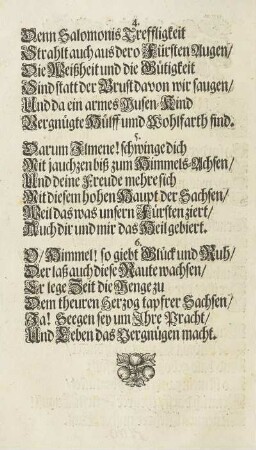 4.
Denn Salomonis Treffligkeit
Strahlt auch aus dero Fürsten Augen/
Die Weißheit und die Gütigkeit
Sind statt der Brust davon wir saugen/
Und da ein armes Musen-Kind
Vergnügte Hülff und Wohlfarth find.
5.
Darum Ilmene! schwinge dich
Mit jauchzen biß zum Himmels-Achsen/
Und deine Freude mehre sich
Mit diesem hohen Haupt der Sachsen/
Weil das was unsern Fürsten ziert/
Auch dir und mir das Heil gebiert.
6.
O/ Himmel! so giebt Glück und Ruh/
Der laß auch diese Raute wachsen/
Er lege Zeit die Menge zu
Dem theuren Herzog tapfrer Sachsen/
Ja! Seegen sey um Ihre Pracht/
Und Leben das Vergnügen macht.